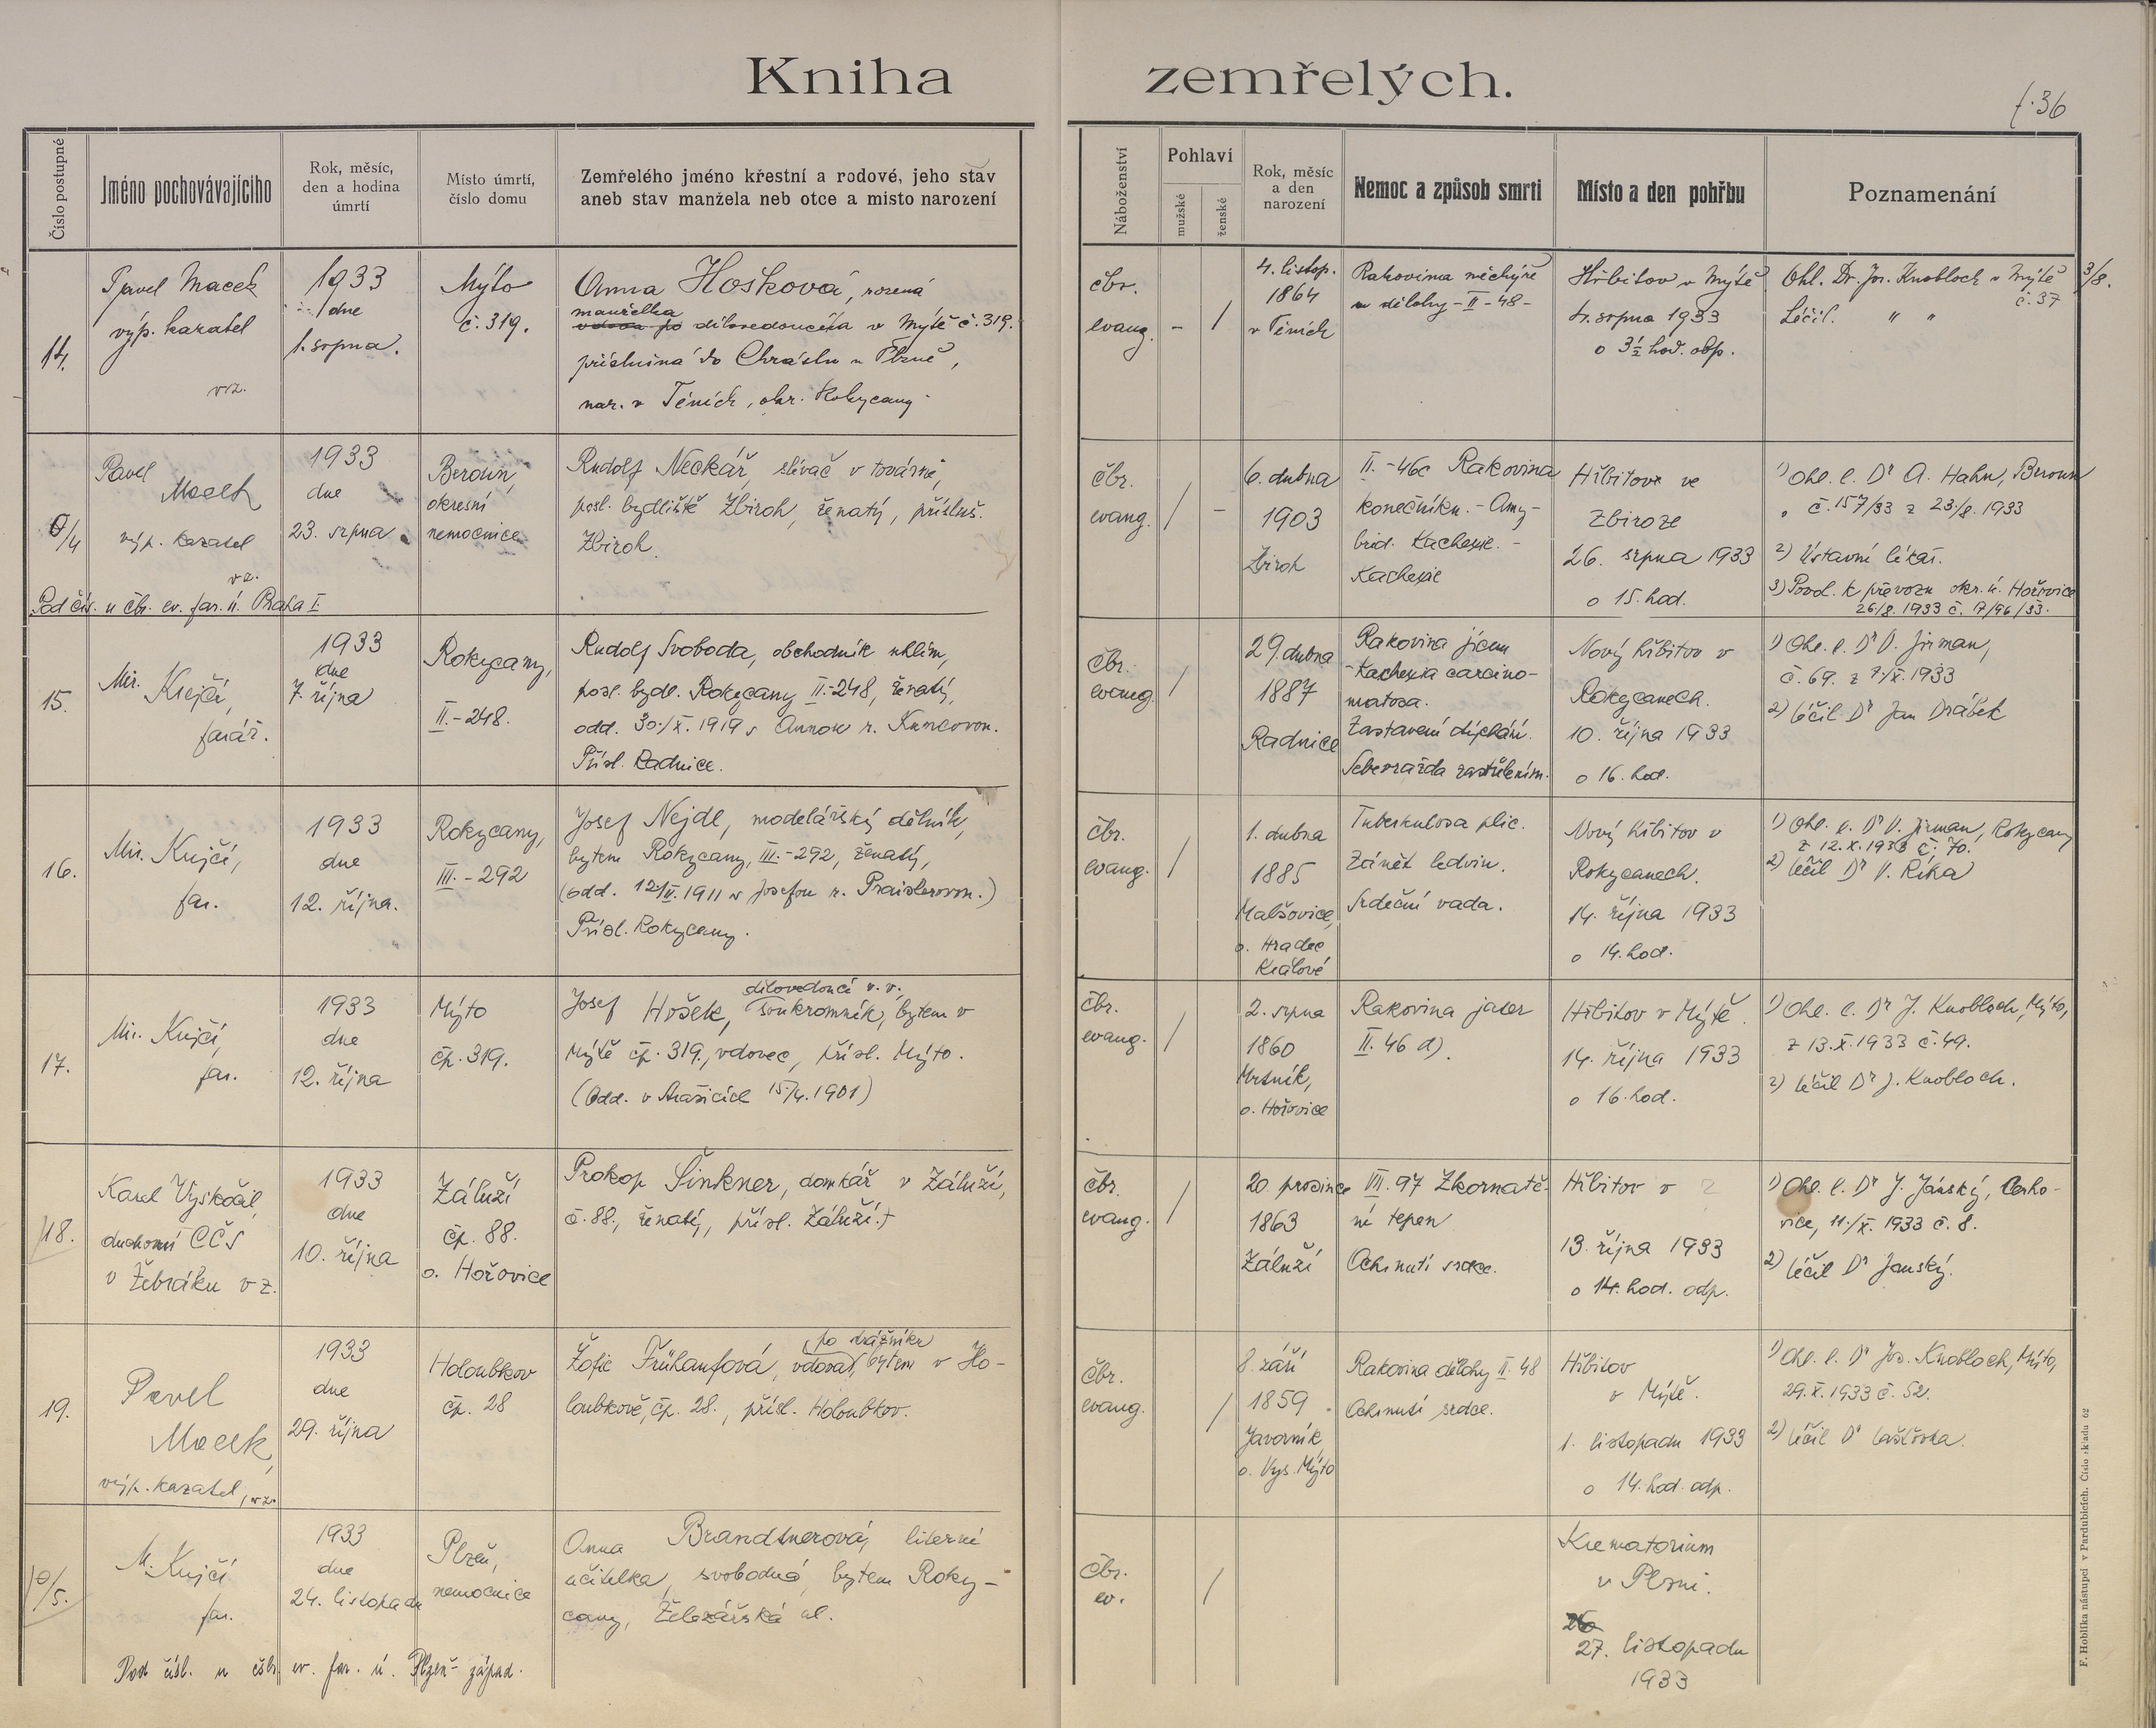 Kniha zemřelých.
f. 36
Číslo postupné
Jméno pochovávajícího
Rok, měsíc,
den a hodina
úmrtí
Místo úmrtí,
číslo domu
Zemřelého jméno křestní a rodové, jeho stav
aneb stav manžela neb otce a místo narození
Náboženství
Pohlaví
mužské
ženské
Rok, měsíc
a den
narození
Nemoc a způsob smrti
Místo a den pohřbu
Poznamenání
14.
Pavel Macek
výp. kazatel
vz.
1933
dne
1. srpna.
Mýto
č. 319.
Anna Hošková, rozená
manželka
vdova po dílovedoucího v Mýtě č. 319.
příslušná do Chrástu u Plzně,
nar. v Těních, okr. Rokycany
čbr.
evang.
-
/
4. listop.
1864
v Těních
Rakovina měchýře
a dělohy - II - 48 -
Hřbitov v Mýtě
4. srpna 1933
o 3½ hod. odp.
Ohl. Dr. Jos. Knobloch v Mýtě 3/8.
č. 37
Léčil. " "
0/4
Pavel
Macek
výp. kazatel
vz.
Pod čís. u čbr. ev. far. ú. Praha I.
1933
dne
23. srpna
Beroun,
okresní
nemocnice
Rudolf Neckář, slévač v továrně,
posl. bydliště Zbiroh, ženatý, přísluš.
Zbiroh.
čbr.
evang.
/
-
6. dubna
1903
Zbiroh
II. - 46c Rakovina
konečníku. - Amy-
loid. Kachexie. -
Kachexie
Hřbitov ve
Zbiroze
26. srpna 1933
o 15. hod.
1) Ohl. l. Dr A. Hahn, Beroun
č. 157/33 z 23./8. 1933
2) Ústavní lékař.
3) Povol. k převozu okr. ú. Hořovice
26/8. 1933 č. 7/96/33.
15.
Mir. Krejčí,
farář.
1933
dne
7. října
Rokycany,
II. - 248.
Rudolf Svoboda, obchodník uhlím,
posl. bydl. Rokycany II. - 248, ženatý,
odd. 30./X. 1919 s Annou r. Kuncovou.
Přísl. Radnice.
čbr.
evang.
/
29. dubna
1887
Radnice
Rakovina jícnu
- Kachexia carcino-
matosa.
Zastavení dýchání.
Sebevražda zastřelením.
Nový hřbitov v
Rokycanech.
10. října 1933
o 16. hod.
1) Ohl. l. Dr V. Jirman,
č. 69. z 7./X. 1933
2) léčil Dr Jan Drábek
16.
Mir. Krejčí,
far.
1933
dne
12. října.
Rokycany,
III. - 292
Josef Nejdl, modelářský dělník,
bytem Rokycany, III. - 292, ženatý,
(odd. 12/II. 1911 s Josefou r. Praislerovou.)
Přísl. Rokycany.
čbr.
evang.
/
1. dubna
1885
Malšovice,
o. Hradec
Králové
Tuberkulosa plic.
Zánět ledvin.
Srdeční vada.
Nový hřbitov v
Rokycanech.
14. října 1933
o 14. hod.
1) Ohl. l. Dr V. Jirman, Rokycany
z 12. X. 1933 č. 70.
2) léčil Dr V. Říka
17.
Mir. Krejčí,
far.
1933
dne
12. října
Mýto
čp. 319.
dílovedoucí v. v.
Josef Hošek, soukromník, bytem v
Mýtě čp. 319., vdovec, přísl. Mýto.
(Odd. v Strašicích 15/4. 1901)
čbr.
evang.
/
2. srpna
1860
Mrtník,
o. Hořovice
Rakovina jater
II. 46 d).
Hřbitov v Mýtě.
14. října 1933
o 16. hod.
1) Ohl. l. Dr J. Knobloch, Mýto,
z 13. X. 1933 č. 49.
2) léčil Dr J. Knobloch.
18.
Karel Vyskočil,
duchovní CČS
v Žebráku v z.
1933
dne
10. října
Záluží
čp. 88.
o. Hořovice
Prokop Šinkner, domkář v Záluží,
č. 88., ženatý, přísl. Záluží.
čbr.
evang.
/
20. prosince
1863
Záluží
III. 97 Zkornatě-
ní tepen
Ochrnutí srdce.
Hřbitov v
13. října 1933
o 14. hod. odp.
1) Ohl. l. Dr J. Jánský, Cerho-
vice, 11./X. 1933 č. 8.
2) léčil Dr Janský.
19.
Pavel
Macek,
výp. kazatel, vz.
1933
dne
29. října
Holoubkov
čp. 28
po strážníku
Žofie Frühaufová, vdova, bytem v Ho-
loubkově, čp. 28., přísl. Holoubkov.
čbr.
evang.
/
8. září
1859
Javorník
o. Vys. Mýto
Rakovina dělohy II. 48
Ochrnutí srdce.
Hřbitov
v Mýtě.
1. listopadu 1933
o 14. hod. odp.
1) Ohl. l. Dr Jos. Knobloch, Mýto,
29. X. 1933 č. 52.
2) léčil Dr
0/5.
M. Krejčí
far.
1933
dne
24. listopadu
Plzeň,
nemocnice
Anna Brandtnerová, literní
učitelka, svobodná, bytem Roky-
cany, Železářská ul.
Pod čísl. u čsbr. ev. far. ú. Plzeň - západ.
čbr.
ev.
/
Krematorium
v Plzni.
26
27. listopadu
1933
F. Hoblíka nástupci v Pardubicích. Číslo skladu 62